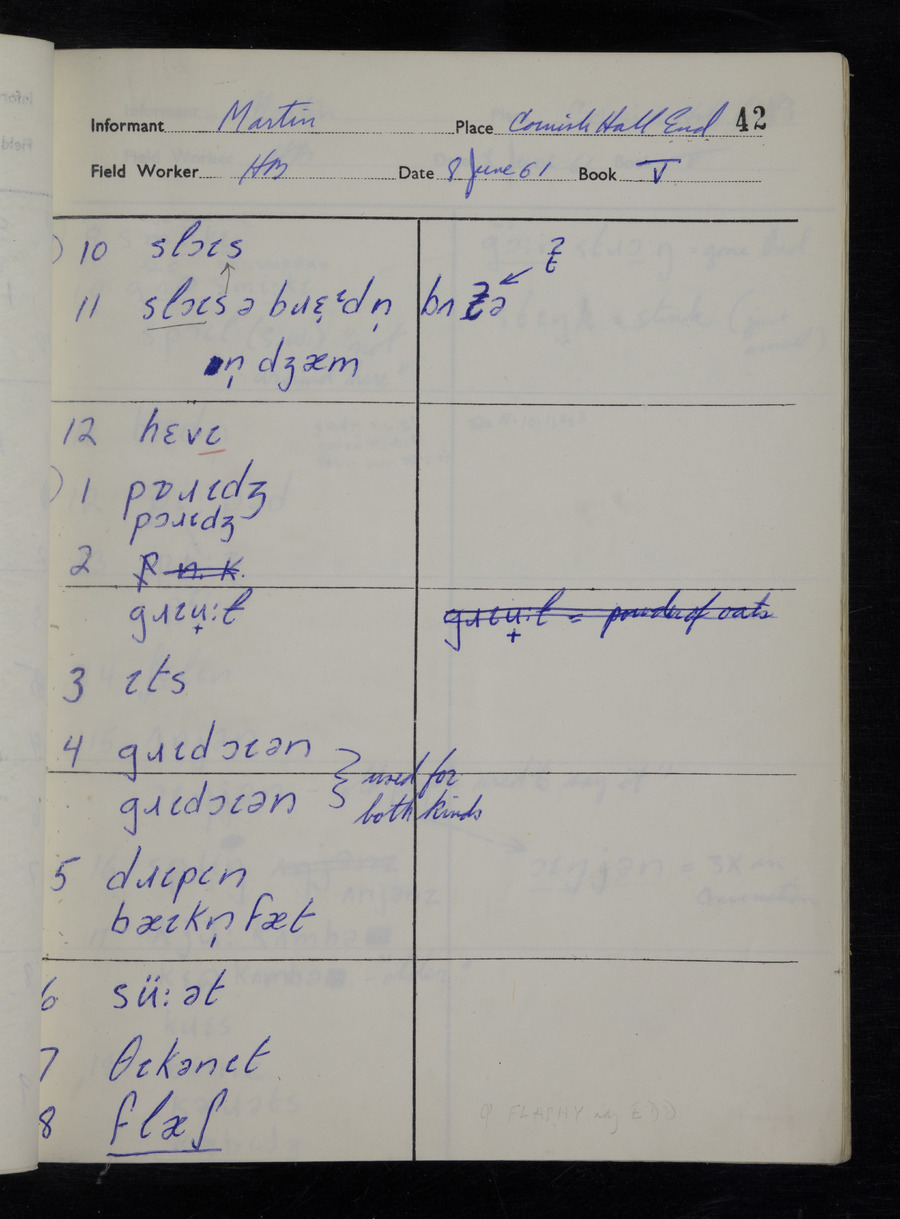 Informant Martin Place Cornish Hall End 42
Field Worker HB Date 8 June 61 Book V
10 slɔɪs
11 slɔɪs ə bɹɛ̞ɪdn̩ bʌtə ʔt
n̩ dʒæm
12 hɛvɪ
1 pɒɹɪdʒ
pɔɹɪdʒ
2
gɹɪu̟:ɫ gɹɪu̟:l = powder of oats
3 ɪts
4 gɹɪdɔɪən
gɹɪdɔɪən } used for both kinds
5 dɹɪpɪn
bæɪkn̩ fæt
6 sü:ət
7 θɪkənɪt
8 flæʃ
? FLASHY adj EDD